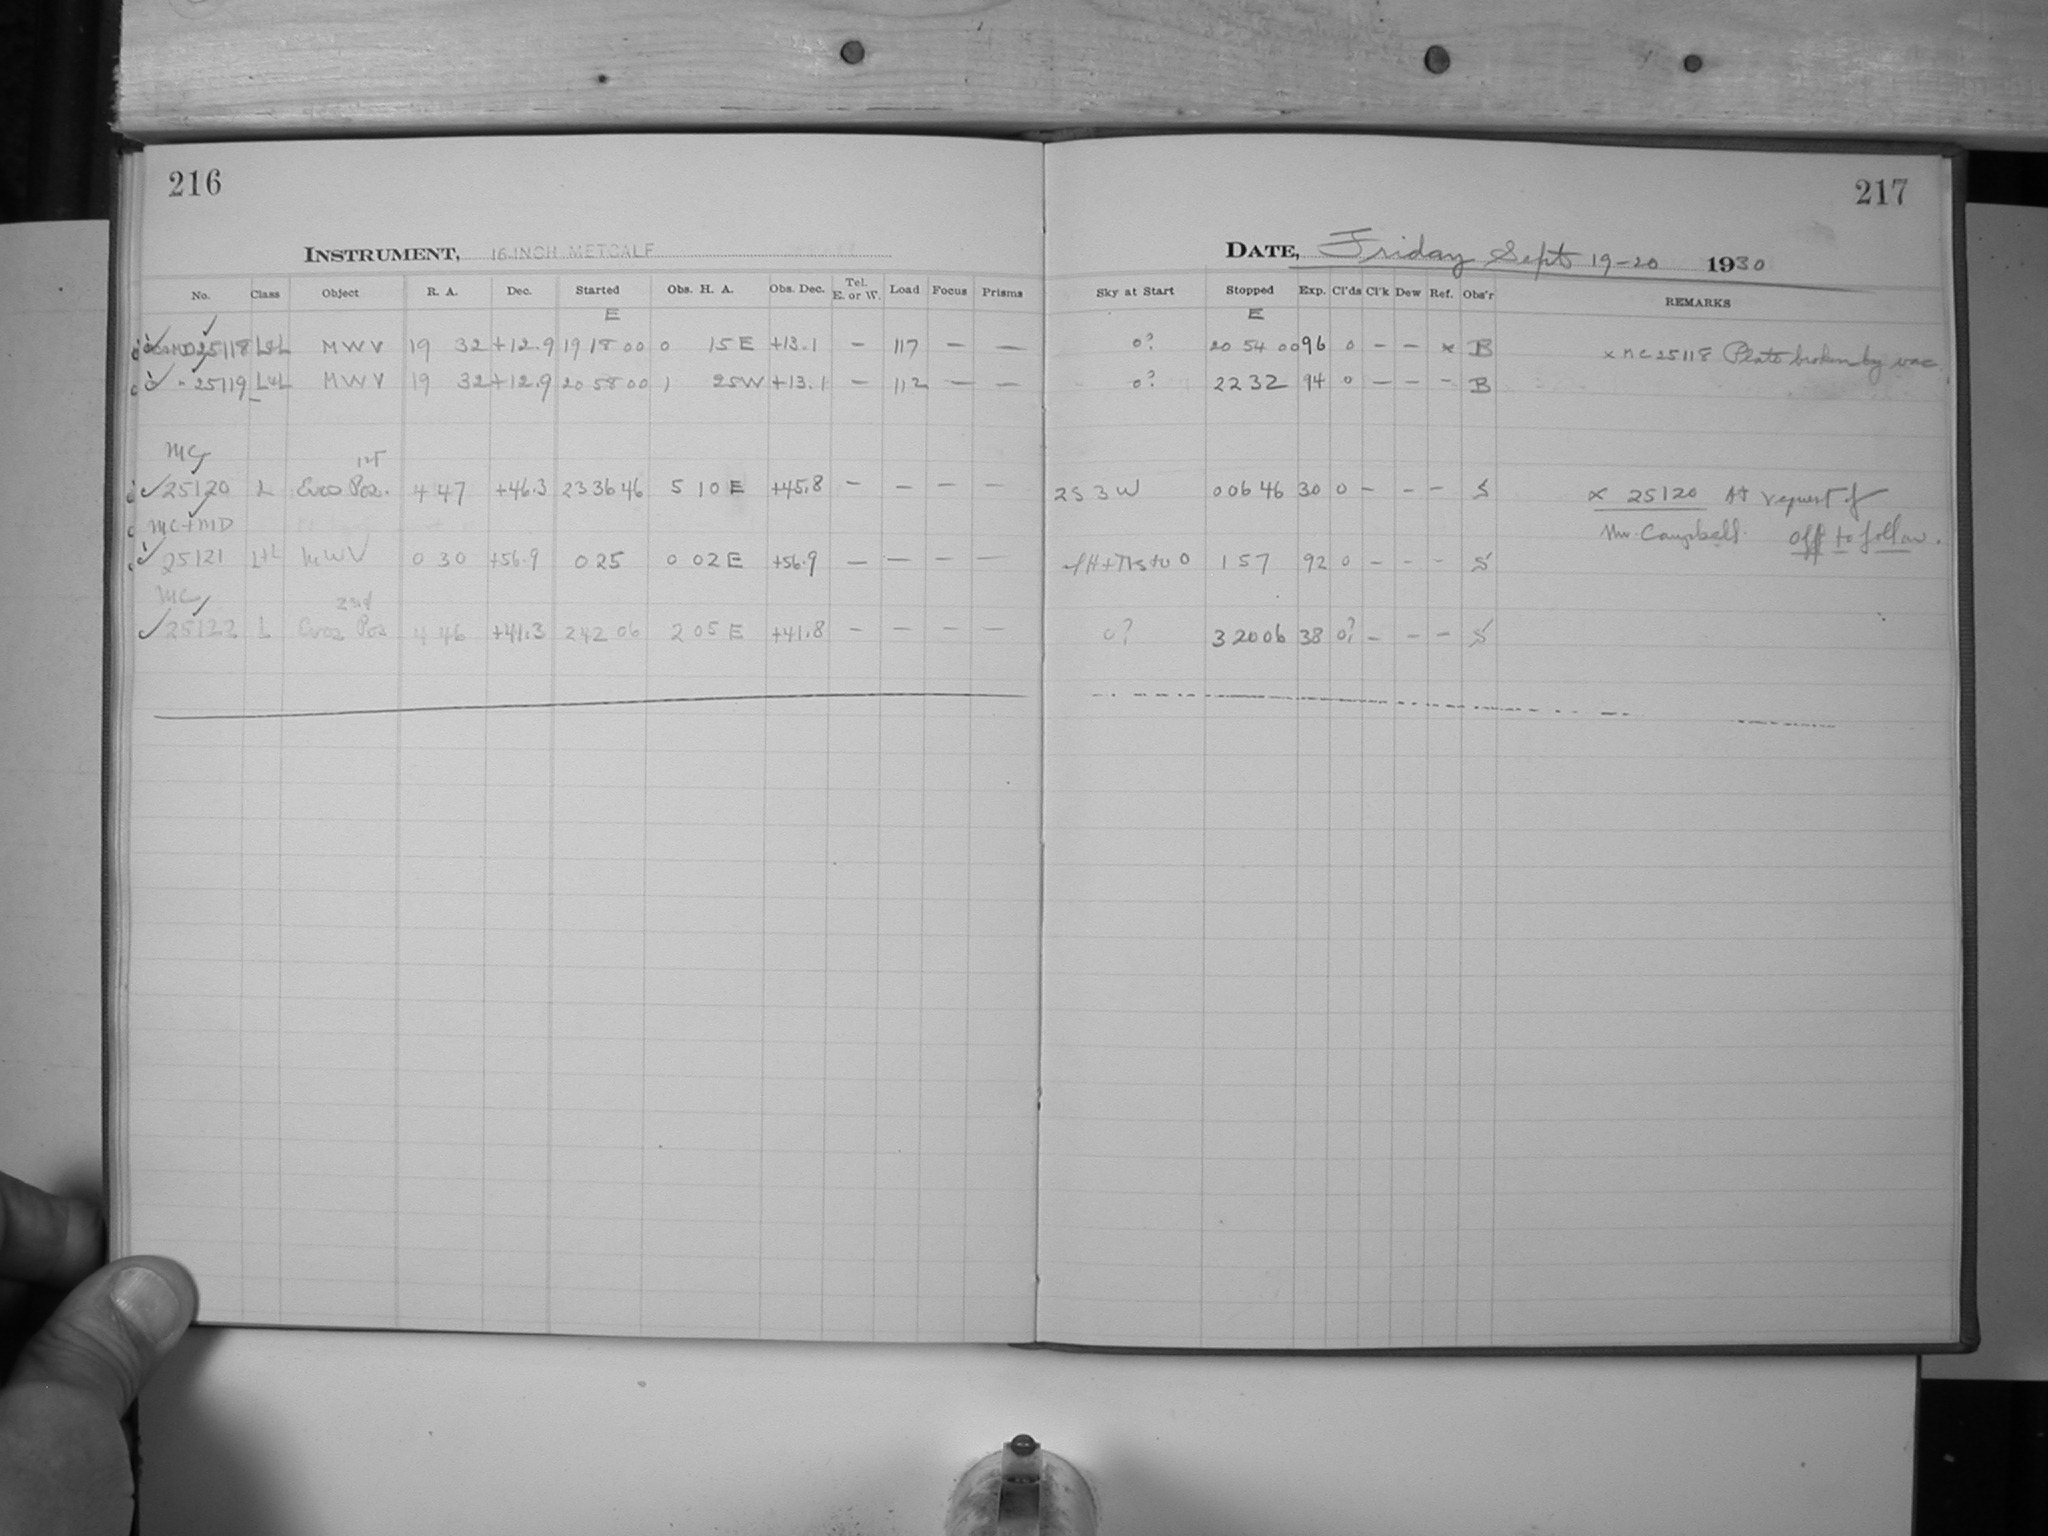 216
217
INSTRUMENT, 16-INCH METCALF
DATE, Friday Sept 19-20 1930
No. Class Object R. A. Dec. Started Obs. H. A. Obs. Dec. Tel. E. or W. Load Focus Prisms Sky at Start Stopped Exp. Cl'ds Cl'k Dew Ref. Obs'r REMARKS
E E
25118 L+L MWV 19 32 +12.9 19 18 00 0 15 E +13.1 — 117 — — 0? 20 54 00 96 0 — — x B x MC 25118 Plate broken by vac.
" 25119 L+L MWV 19 32 +12.9 20 58 00 1 25 W +13.1 — 112 — — 0? 22 32 94 0 — — — B
MC 1st
25120 L Eros Pos. 4 47 +46.3 23 36 46 5 10 E +45.8 — — — — 2S 3W 0 06 46 30 0 — — — S x 25120 At request of
MC+MD Mr. Campbell. Off to follow.
25121 L+L MWV 0 30 +56.9 0 25 0 02 E +56.9 — — — — 1 57 92 0 — — — S
MC 2nd
25122 L Eros Pos 4 46 +41.3 2 42 06 2 05 E +41.8 — — — — 0? 3 20 06 38 0? — — — S